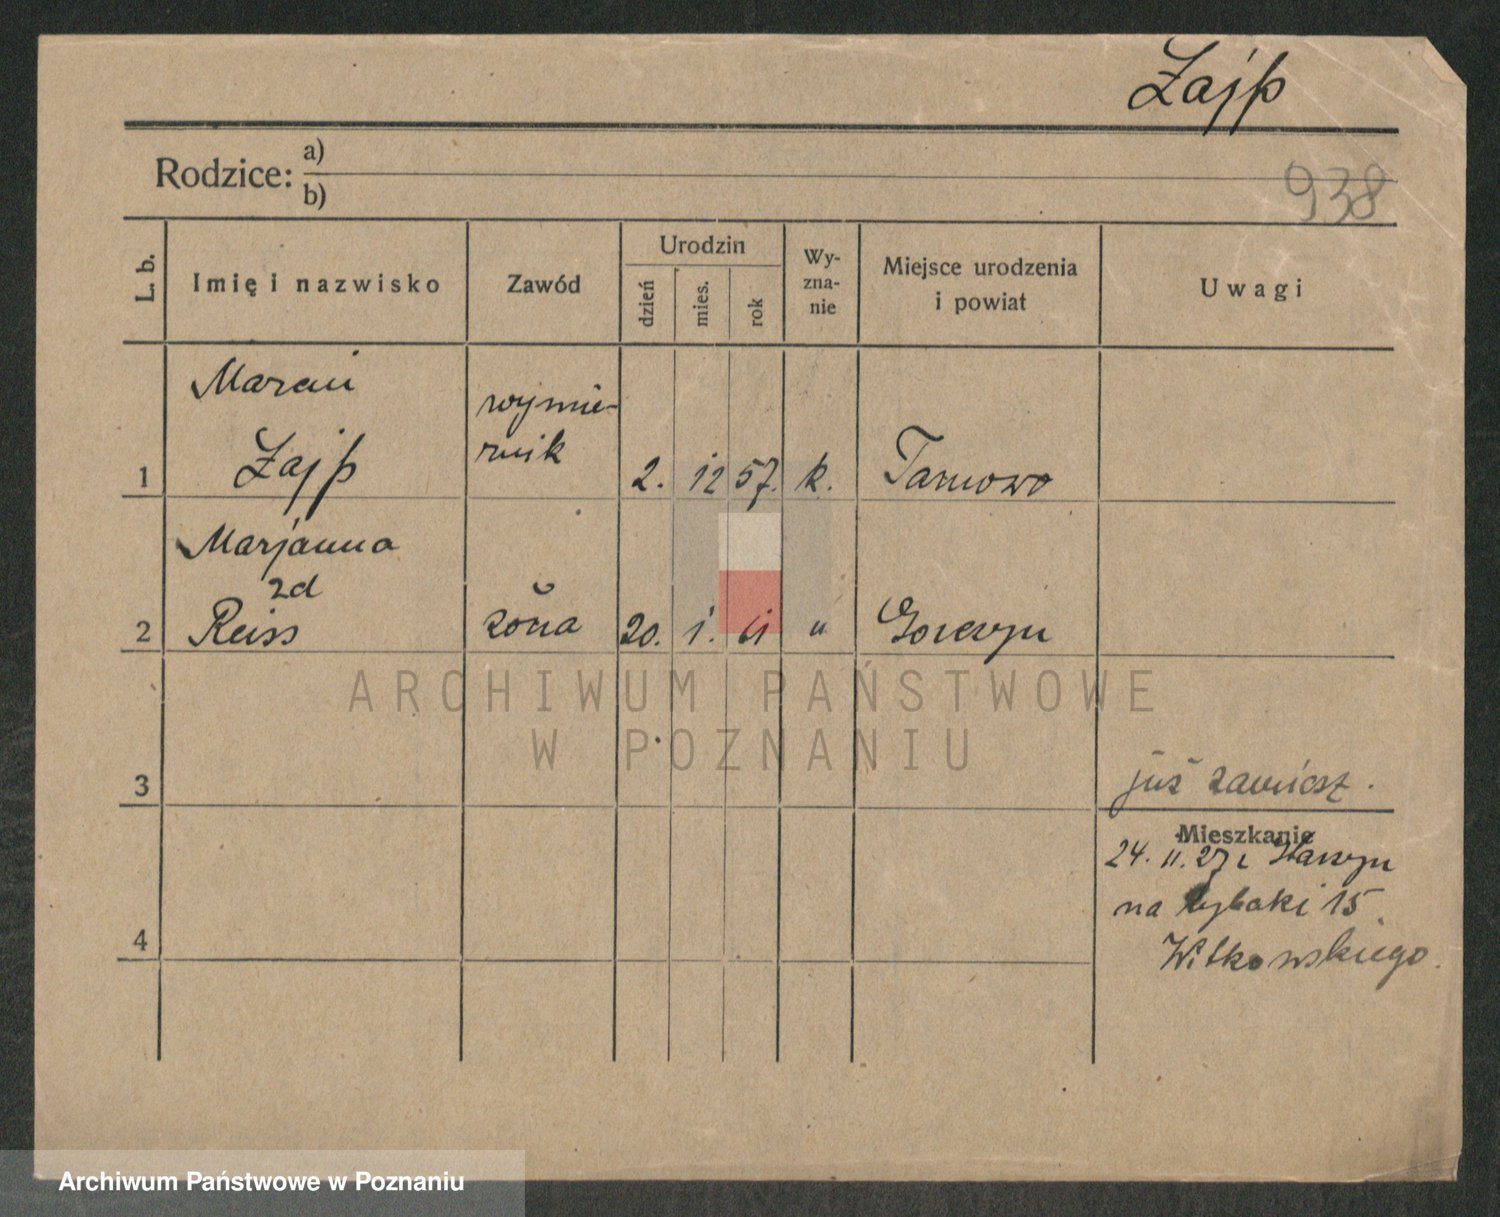 Zajþ
Rodzice: a)
b)
938
L. b.
Imię i nazwisko
Zawód
Urodzin
dzień
mies.
rok
Wy-
zna-
nie
Miejsce urodzenia
i powiat
Uwagi
1
Marcin
Zajþ
wymie-
rnik
2. 12 57. k.
Tarnowo
2
Marjanna
zd
Reiss
żona
20. 1. 61 "
Gorczyn
ARCHIWUM PAŃSTWOWE
W POZNANIU
3
już
Mieszkanie
24. 11. 27
na Rybaki 15.
Witkowskiego.
4
Archiwum Państwowe w Poznaniu